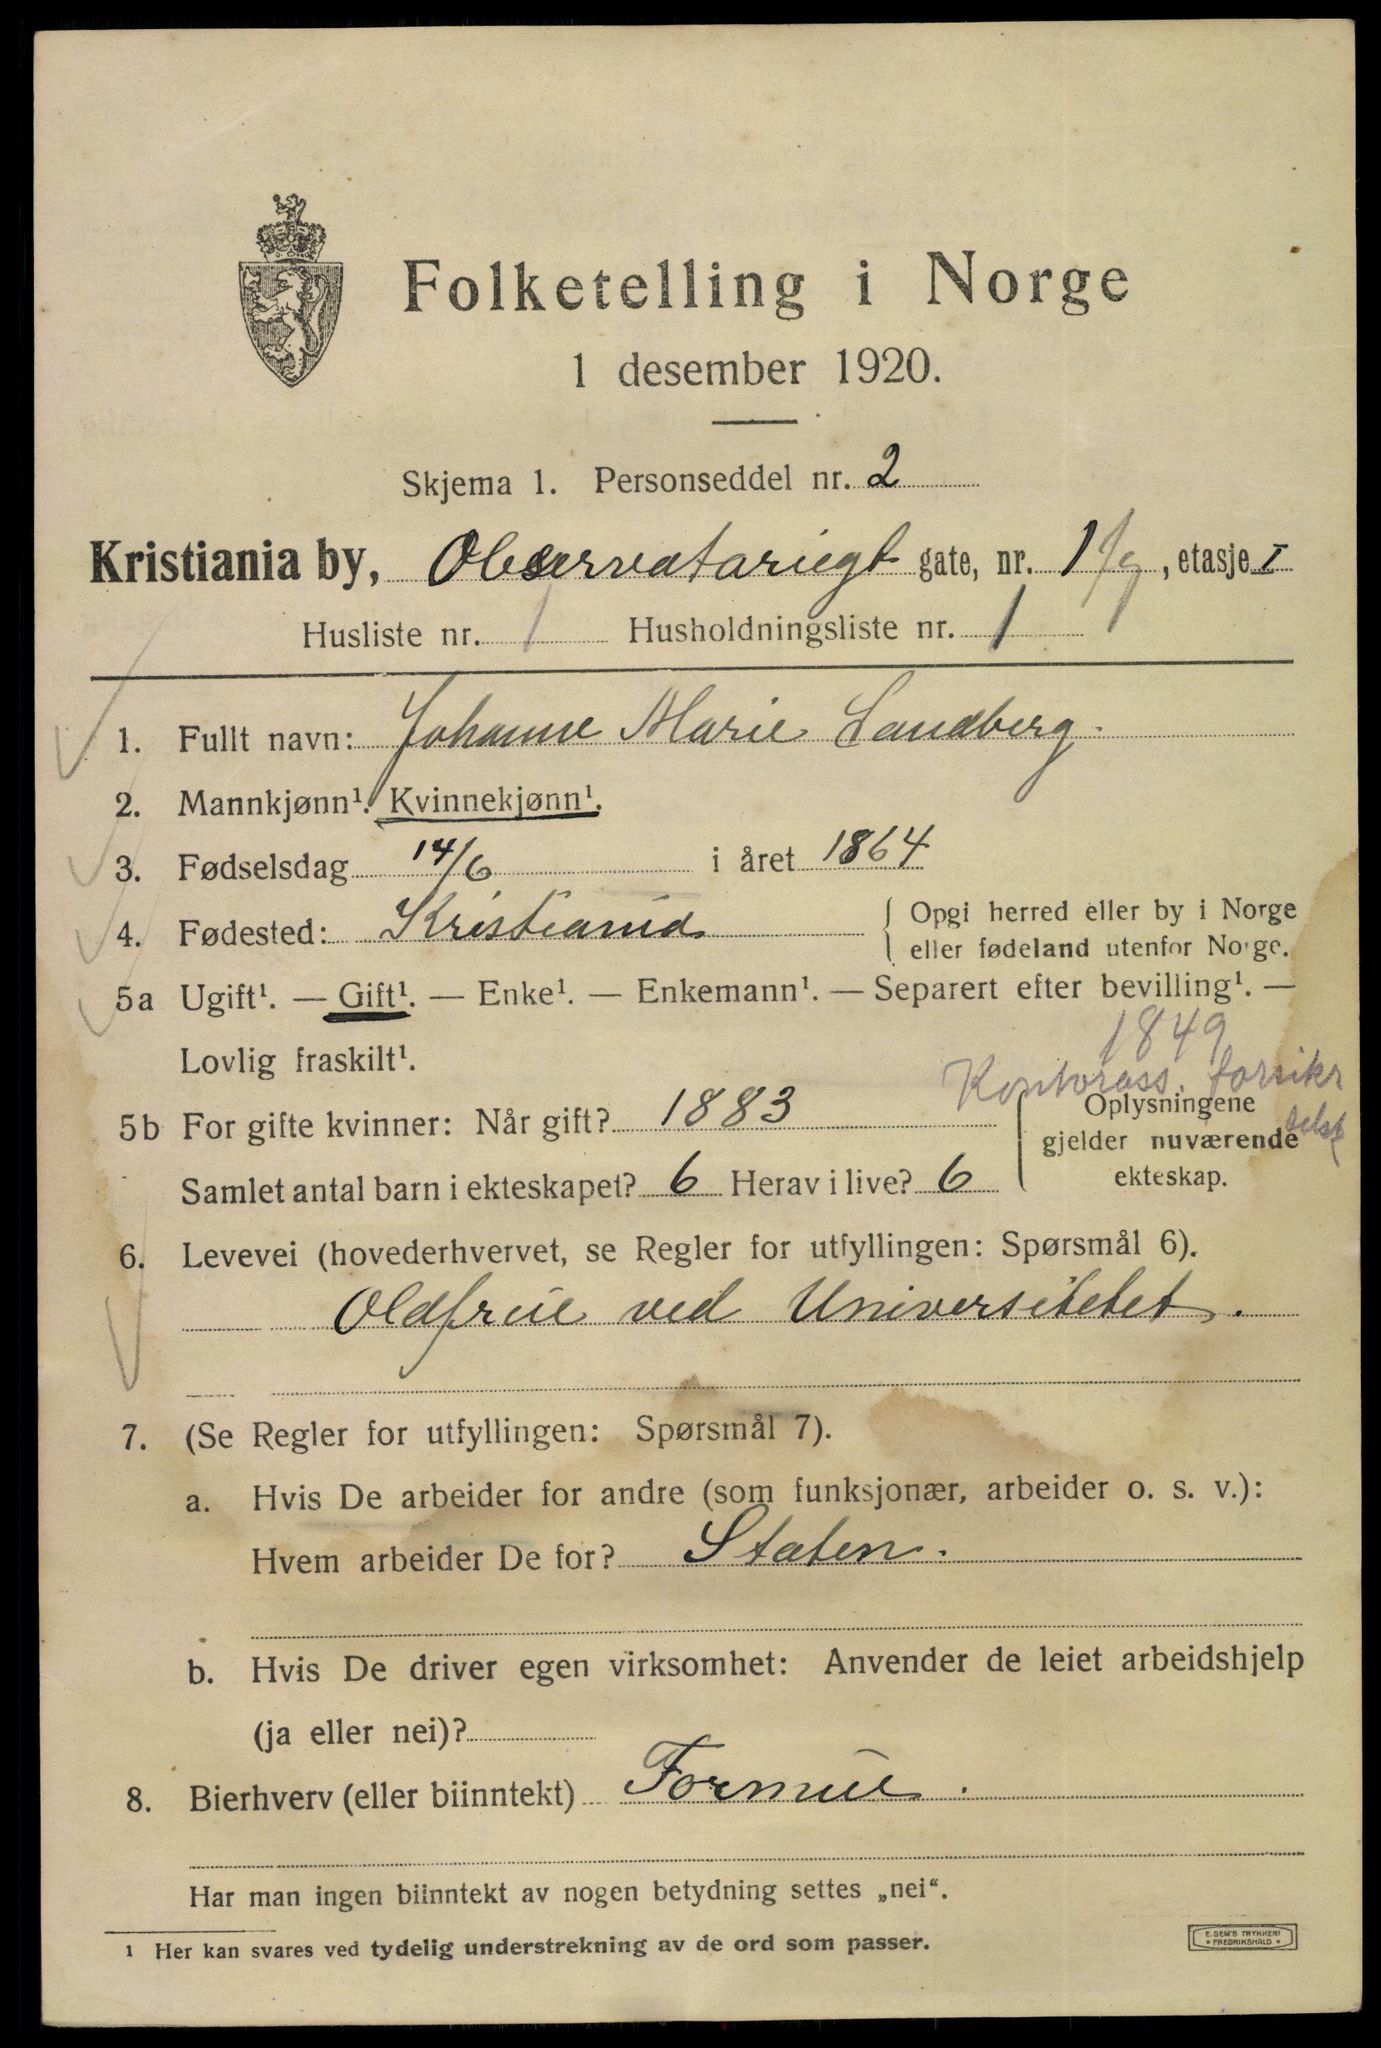 Folketelling i Norge
1 desember 1920.
Skjema 1. Personseddel nr. 2
Kristiania by, Observatoriegt gate, nr. 1, etasje I
Husliste nr. 1 Husholdningsliste nr. 1
1. Fullt navn: Johanne Marie Sandberg.
2. Mannkjønn¹. Kvinnekjønn¹.
3. Fødselsdag 14/6 i året 1864
4. Fødested: Kristiania { Opgi herred eller by i Norge
eller fødeland utenfor Norge.
5a Ugift¹. — Gift¹. — Enke¹. — Enkemann¹. — Separert efter bevilling¹. —
Lovlig fraskilt¹.
1849
Kontorass. forsikr
selsk
5b For gifte kvinner: Når gift? 1883
Samlet antal barn i ekteskapet? 6 Herav i live? 6
Oplysningene
gjelder nuværende
ekteskap.
6. Levevei (hovederhvervet, se Regler for utfyllingen: Spørsmål 6).
Oldfrue ved Universitetet.
7. (Se Regler for utfyllingen: Spørsmål 7).
a. Hvis De arbeider for andre (som funksjonær, arbeider o. s. v.):
Hvem arbeider De for? Staten.
b. Hvis De driver egen virksomhet: Anvender de leiet arbeidshjelp
(ja eller nei)?
8. Bierhverv (eller biinntekt) Formue.
Har man ingen biinntekt av nogen betydning settes „nei“.
1 Her kan svares ved tydelig understrekning av de ord som passer.
E. SEM'S TRYKKERI
• FREDRIKSHALD •